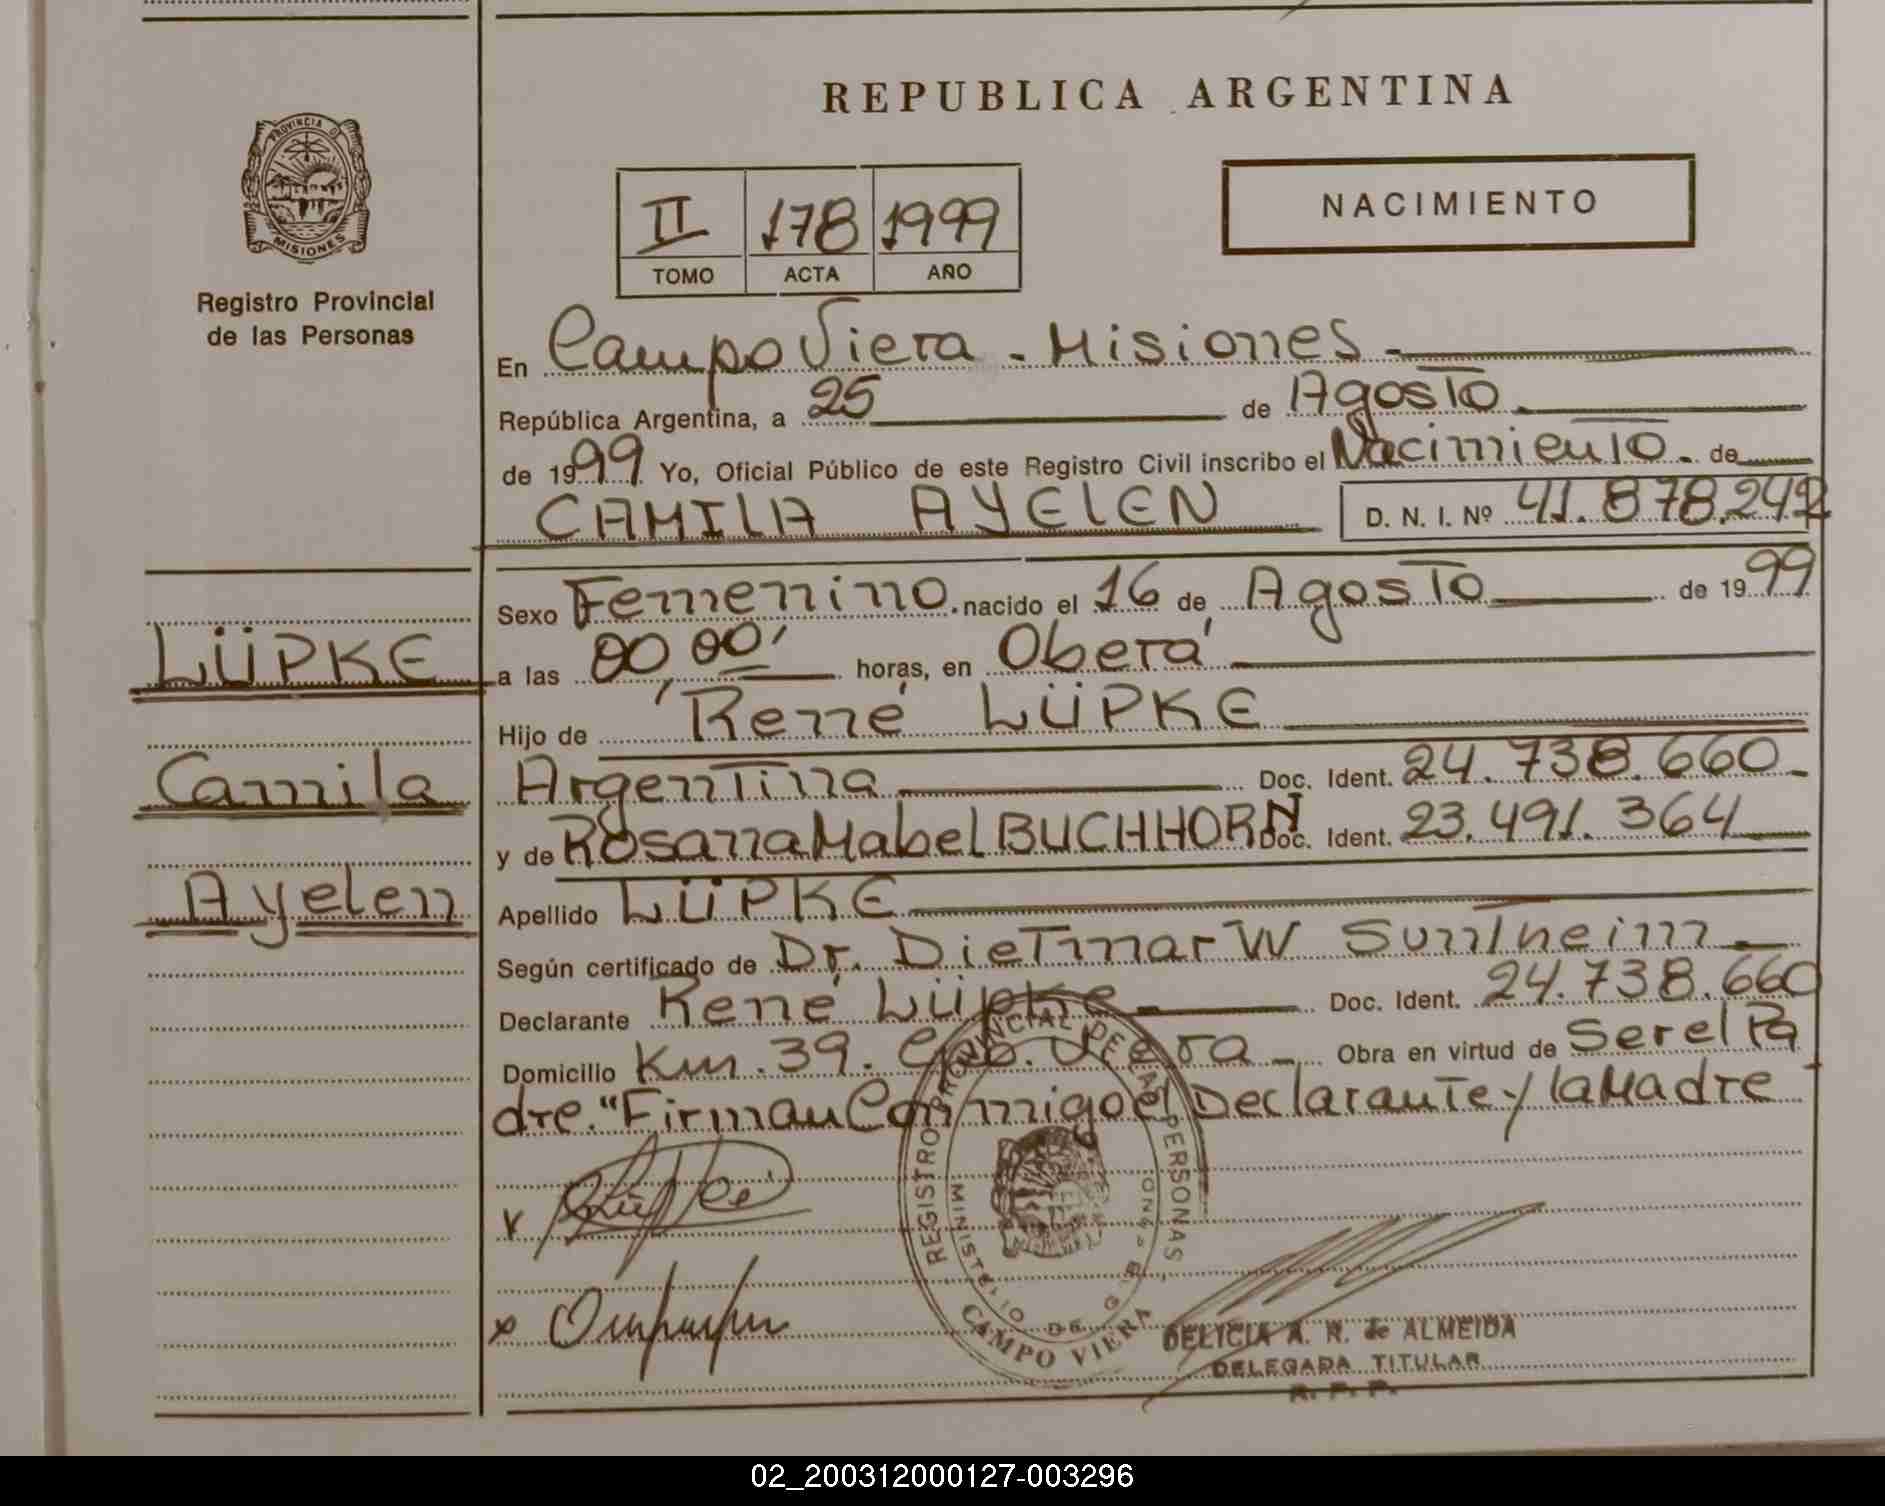 REPUBLICA ARGENTINA
PROVINCIA DE
MISIONES
Registro Provincial
de las Personas
II 178 1999
TOMO ACTA AÑO
NACIMIENTO
En Campo Viera - Misiones -
República Argentina, a 25 de Agosto
de 1999 Yo, Oficial Público de este Registro Civil inscribo el Nacimiento. de
CAMILA AYELEN D. N. I. Nº 41.878.242
Sexo Femenino. nacido el 16 de Agosto de 1999
LÜPKE
a las 00,00' horas, en Oberá
Hijo de René LÜPKE
Camila
Argentina Doc. Ident. 24.738.660-
y de Rosana Mabel BUCHHORN Doc. Ident. 23.491.364
Ayelen
Apellido LÜPKE
Según certificado de Dr. Dietmar W Suntheim
Declarante René Lüpke Doc. Ident. 24.738.660
Domicilio Km. 39. Cpo. Viera - Obra en virtud de Ser el Pa
dre. "Firman Conmigo el Declarante y la Madre
REGISTRO PROVINCIAL DE LAS PERSONAS
MINISTERIO DE GOB
CAMPO VIERA
DELICIA A. N. de ALMEIDA
DELEGADA TITULAR
R. P. P.
02_200312000127-003296